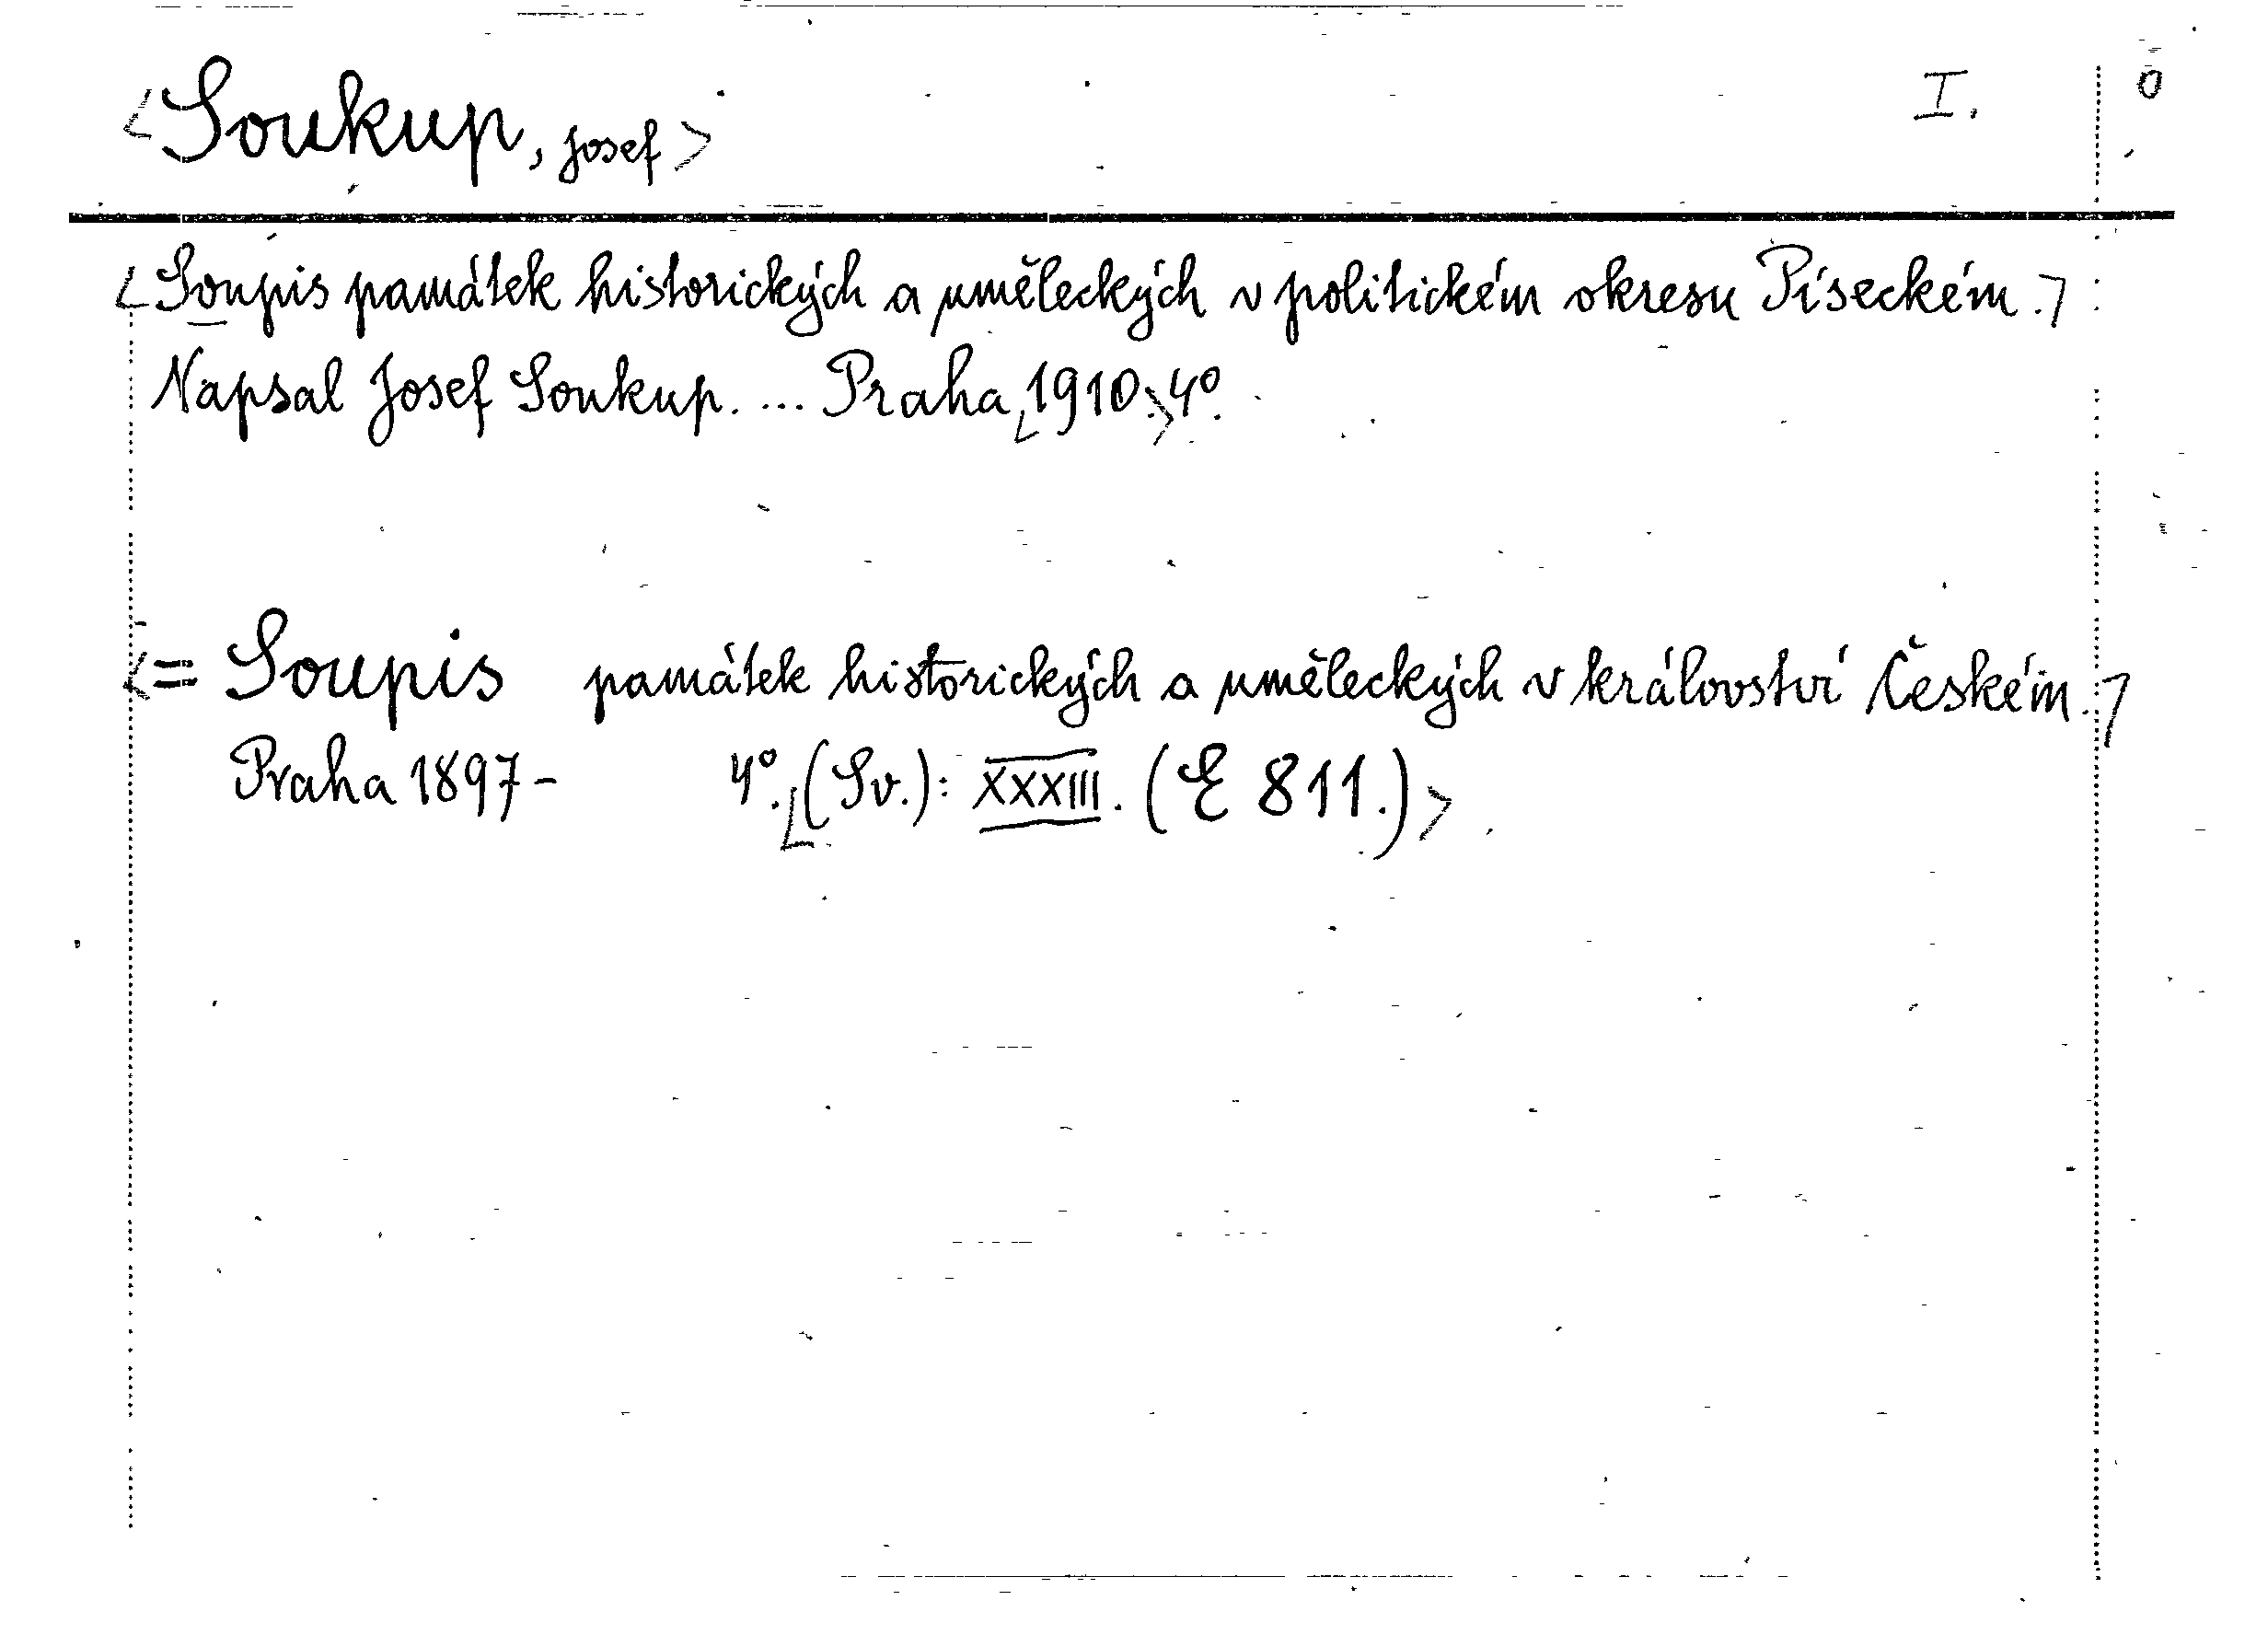 <Soukup, Josef> I. 0
<Soupis památek historických a uměleckých v politickém okresu Píseckém.>
Napsal Josef Soukup. ... Praha <1910.> 4º.
<= Soupis památek historických a uměleckých v království Českém.>
Praha 1897- 4º. <(Sv.): XXXIII. (E 811.)>